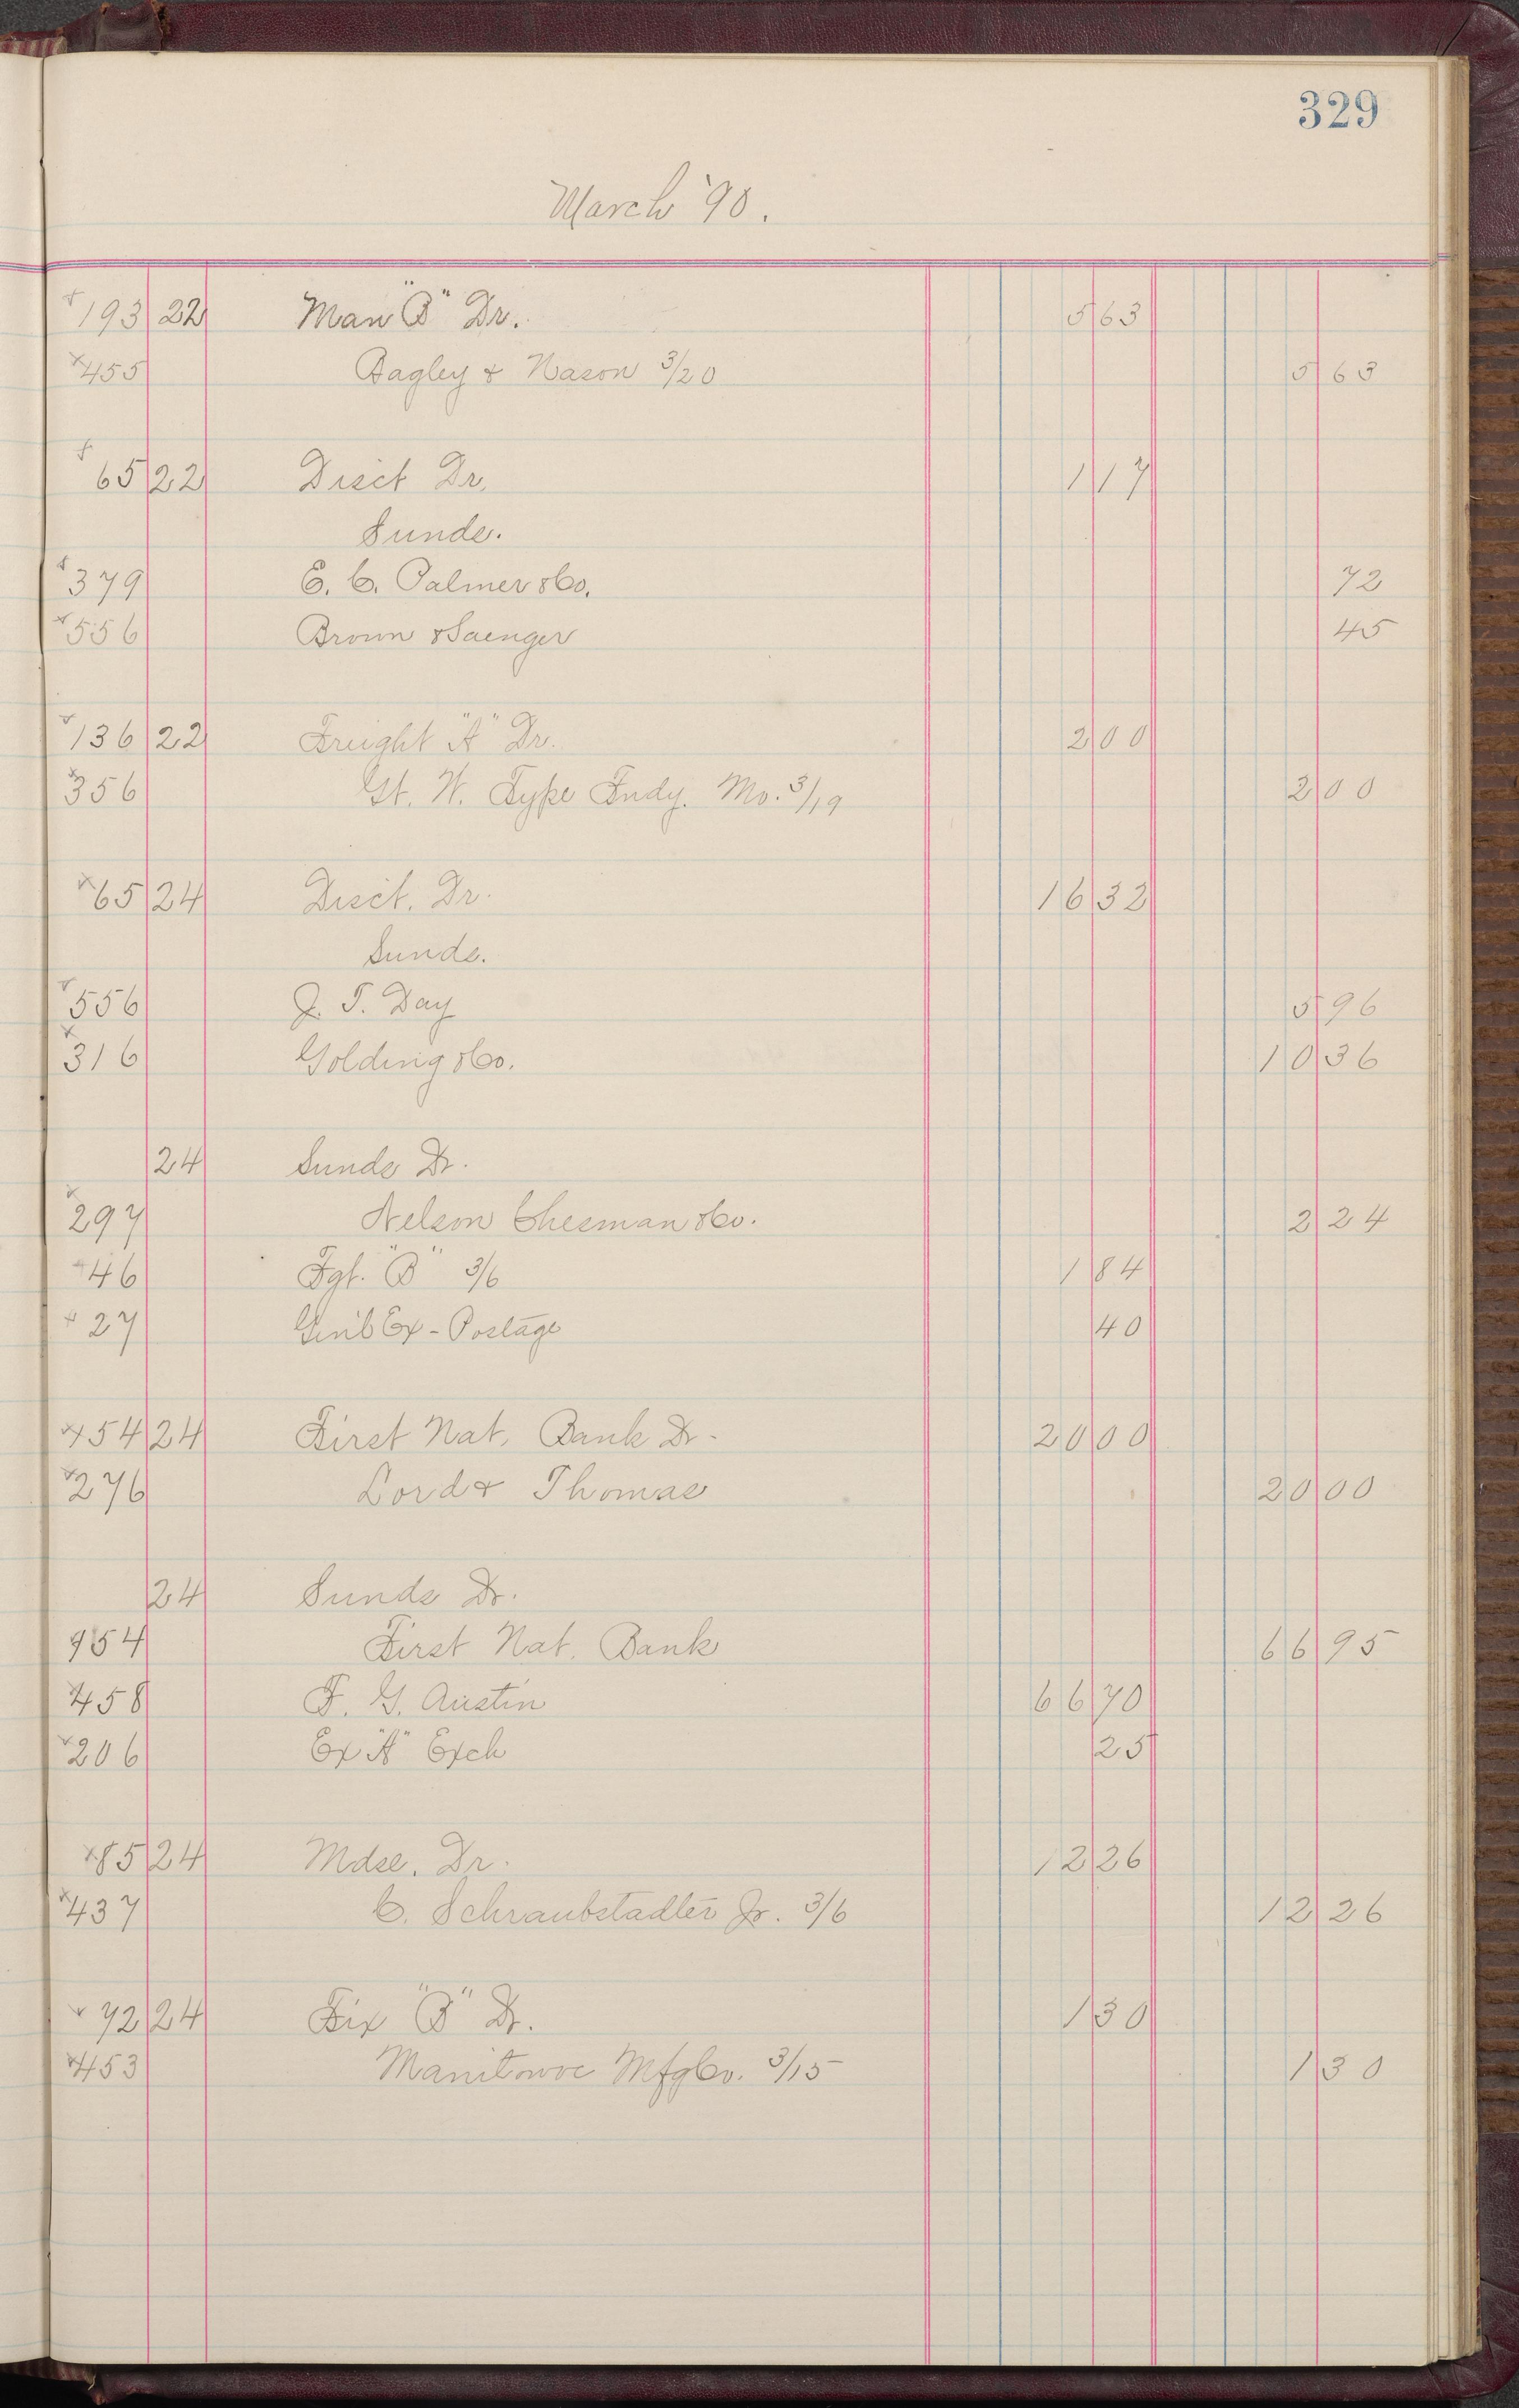 329
March '90.
193 22 Man "B" Dr. 5 63
455 Bagley & Nason 3/20 5 63
65 22 Disct Dr. 1 17
Sunds.
379 E. C. Palmer & Co. 72
556 Brown & Saenger 45
136 22 Freight "A" Dr. 2 00
356 Gt. W. Type Fndy. Mo. 3/19 2 00
65 24 Disct. Dr. 16 32
Sunds.
556 J. T. Day 5 96
316 Golding & Co. 10 36
24 Sunds Dr.
297 Nelson Chesman & Co. 2 24
46 Fgt. "B" 3/6 1 84
27 Gen'l Ex - Postage 40
454 24 First Nat. Bank Dr. 20 00
276 Lord & Thomas 20 00
24 Sunds Dr.
454 First Nat. Bank 66 95
458 F. G. Austin 66 70
206 Ex "A" Exch 25
85 24 Mdse. Dr. 12 26
437 C. Schraubstadter Jr. 3/6 12 26
72 24 Fix "B" Dr. 1 30
453 Manitowoc Mfg Co. 3/15 1 30